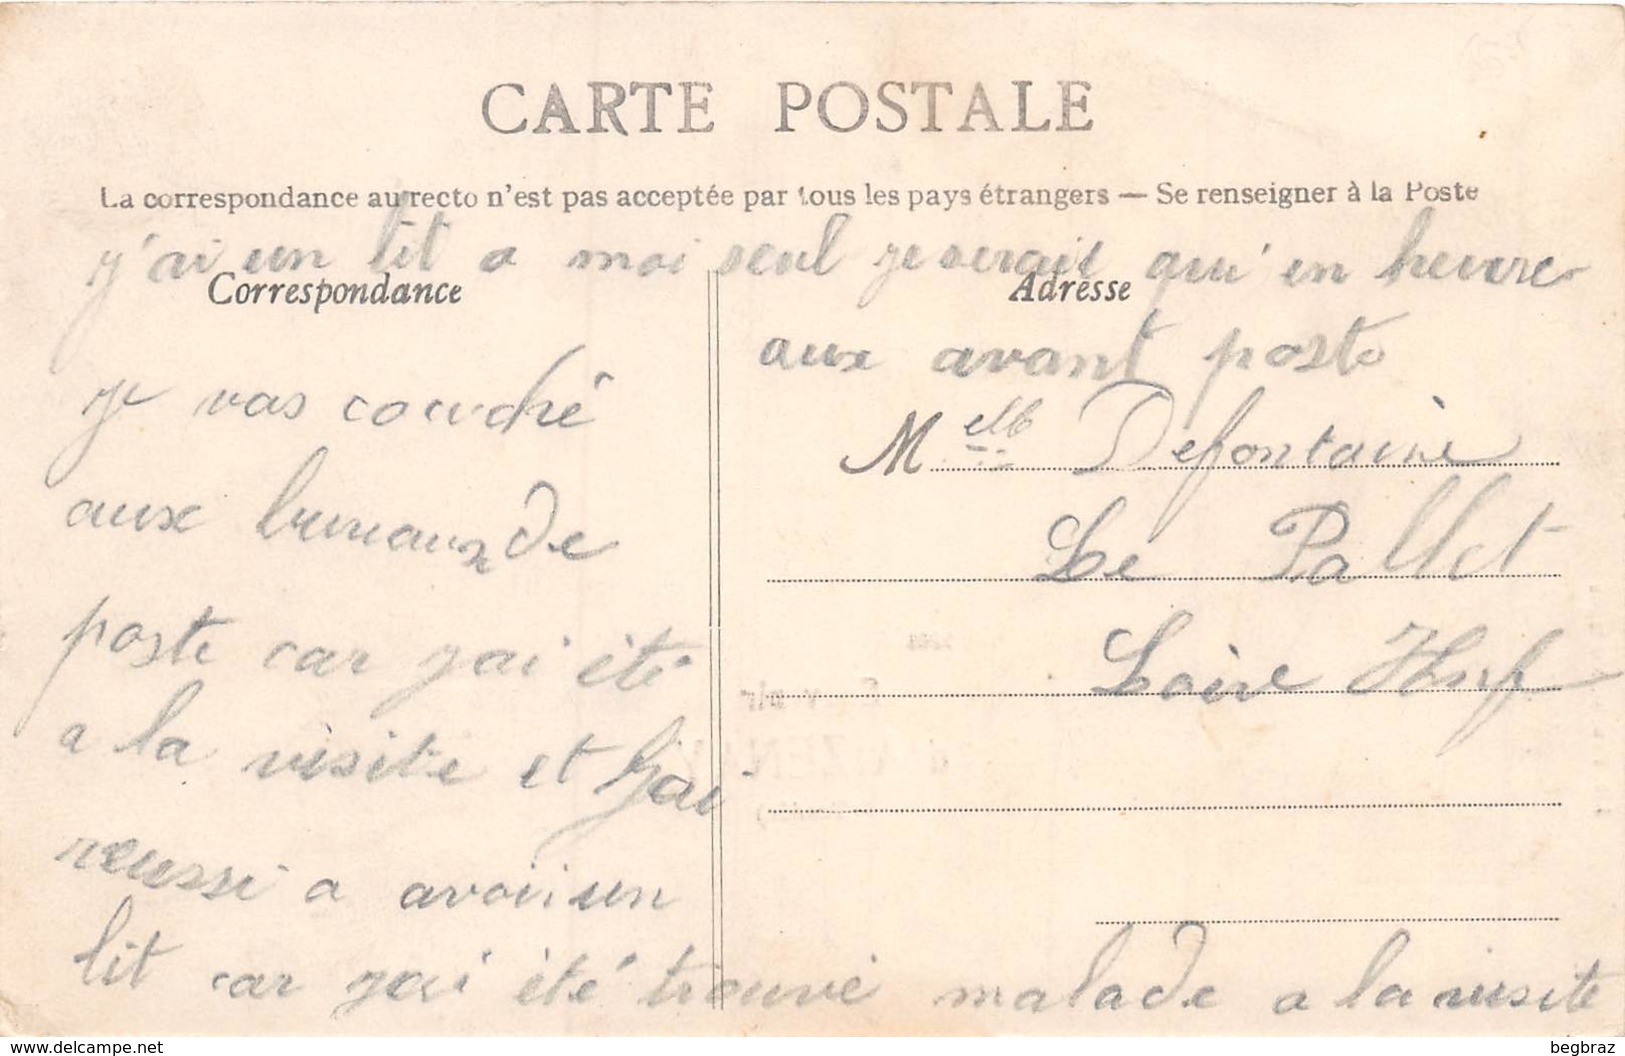 CARTE POSTALE
La correspondance au recto n'est pas acceptée par tous les pays étrangers — Se renseigner à la Poste
j'ai un lit a moi seul je serait qu'en heure
aux avant poste
Correspondance
je vas couché
aux bureaux de
poste car j'ai été
a la visite et j'ai
reussi a avoir un
lit car j'ai été trouvé malade a la visite
Adresse
Melle Defontaine
Le Pallet
Loire Infre
www.delcampe.net
begbraz